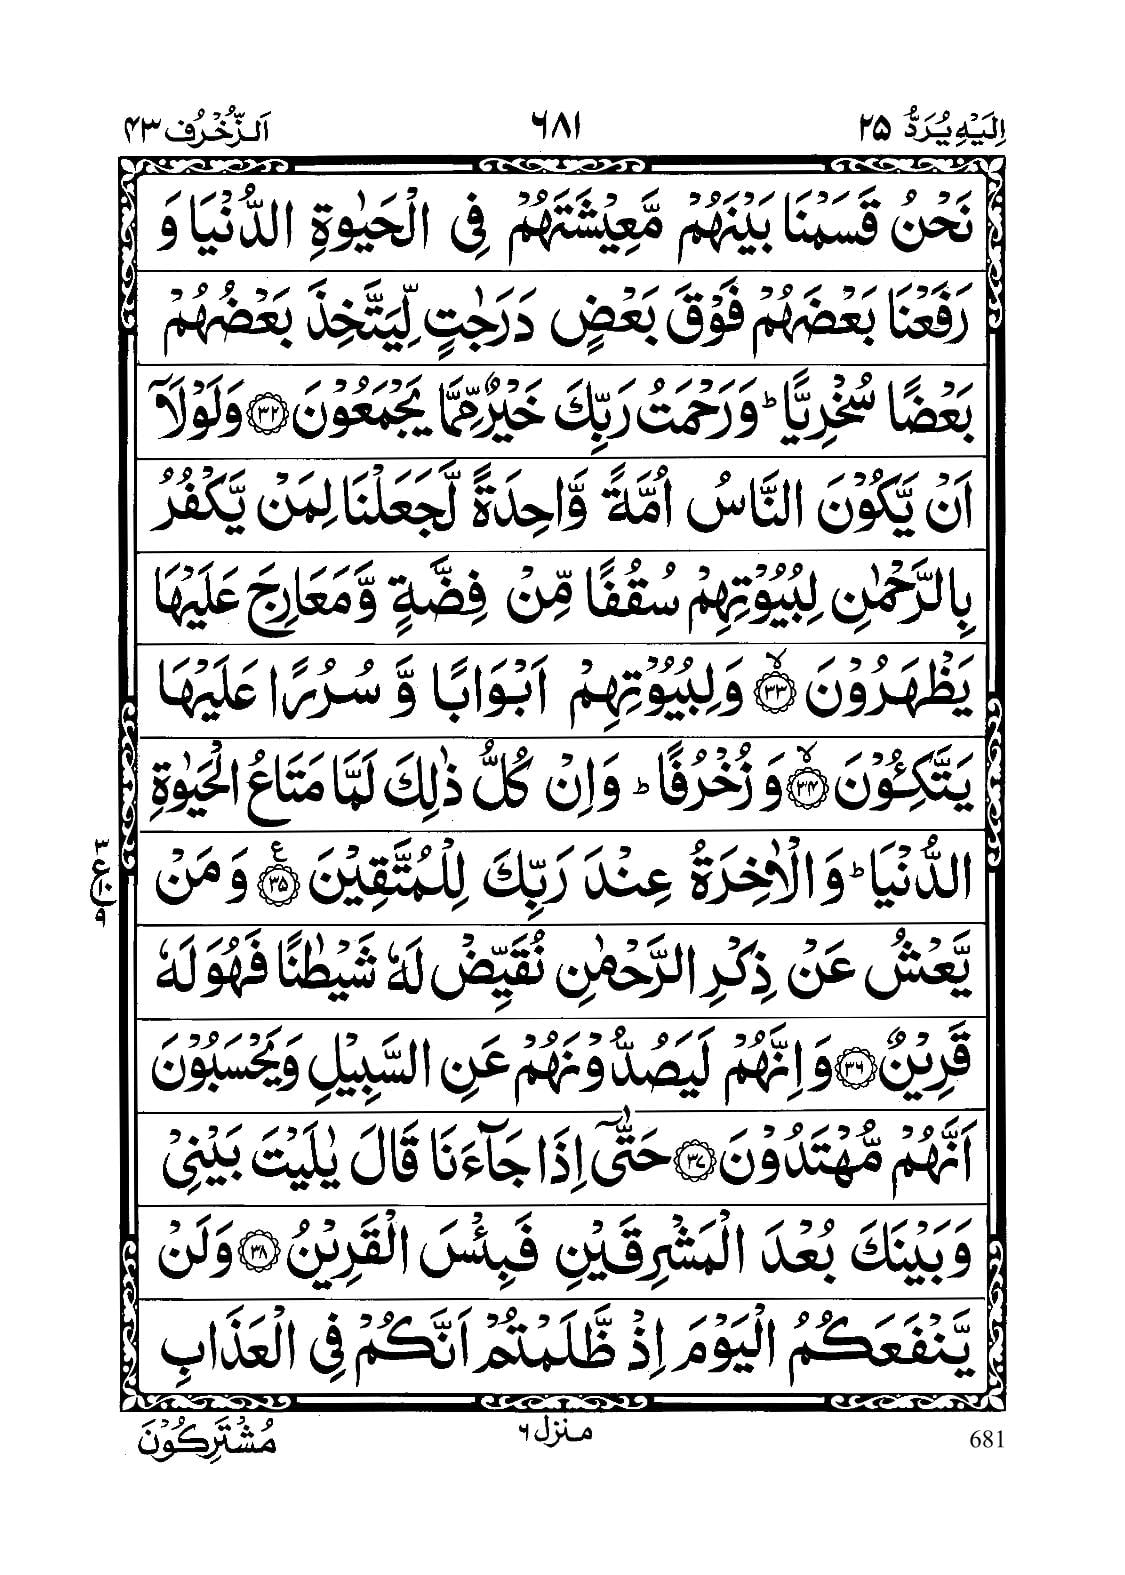 اِلَيْهِ يُرَدُّ ۲۵
۶۸۱
اَلزُّخْرُف ۴۳
نَحْنُ قَسَمْنَا بَيْنَهُمْ مَّعِيْشَتَهُمْ فِى الْحَيٰوةِ الدُّنْيَا وَ
رَفَعْنَا بَعْضَهُمْ فَوْقَ بَعْضٍ دَرَجٰتٍ لِّيَتَّخِذَ بَعْضُهُمْ
بَعْضًا سُخْرِيًّا ؕ وَرَحْمَتُ رَبِّكَ خَيْرٌ مِّمَّا يَجْمَعُوْنَ ۝۳۲ وَلَوْلَاۤ
اَنْ يَّكُوْنَ النَّاسُ اُمَّةً وَّاحِدَةً لَّجَعَلْنَا لِمَنْ يَّكْفُرُ
بِالرَّحْمٰنِ لِبُيُوْتِهِمْ سُقُفًا مِّنْ فِضَّةٍ وَّمَعَارِجَ عَلَيْهَا
يَظْهَرُوْنَ ۝۳۳ ۙ وَلِبُيُوْتِهِمْ اَبْوَابًا وَّ سُرُرًا عَلَيْهَا
يَتَّكِـُٔوْنَ ۝۳۴ ۙ وَ زُخْرُفًا ؕ وَاِنْ كُلُّ ذٰلِكَ لَمَّا مَتَاعُ الْحَيٰوةِ
الدُّنْيَا ؕ وَالْاٰخِرَةُ عِنْدَ رَبِّكَ لِلْمُتَّقِيْنَ ۝۳۵ ع وَ مَنْ
۳
ع ۱۰
۹
يَّعْشُ عَنْ ذِكْرِ الرَّحْمٰنِ نُقَيِّضْ لَهٗ شَيْطٰنًا فَهُوَ لَهٗ
قَرِيْنٌ ۝۳۶ وَ اِنَّهُمْ لَيَصُدُّوْنَهُمْ عَنِ السَّبِيْلِ وَيَحْسَبُوْنَ
اَنَّهُمْ مُّهْتَدُوْنَ ۝۳۷ حَتّٰۤى اِذَا جَآءَنَا قَالَ يٰلَيْتَ بَيْنِىْ
وَبَيْنَكَ بُعْدَ الْمَشْرِقَيْنِ فَبِئْسَ الْقَرِيْنُ ۝۳۸ وَلَنْ
يَّنْفَعَكُمُ الْيَوْمَ اِذْ ظَّلَمْتُمْ اَنَّكُمْ فِى الْعَذَابِ
مُشْتَرِكُوْنَ
منزل ۶
681